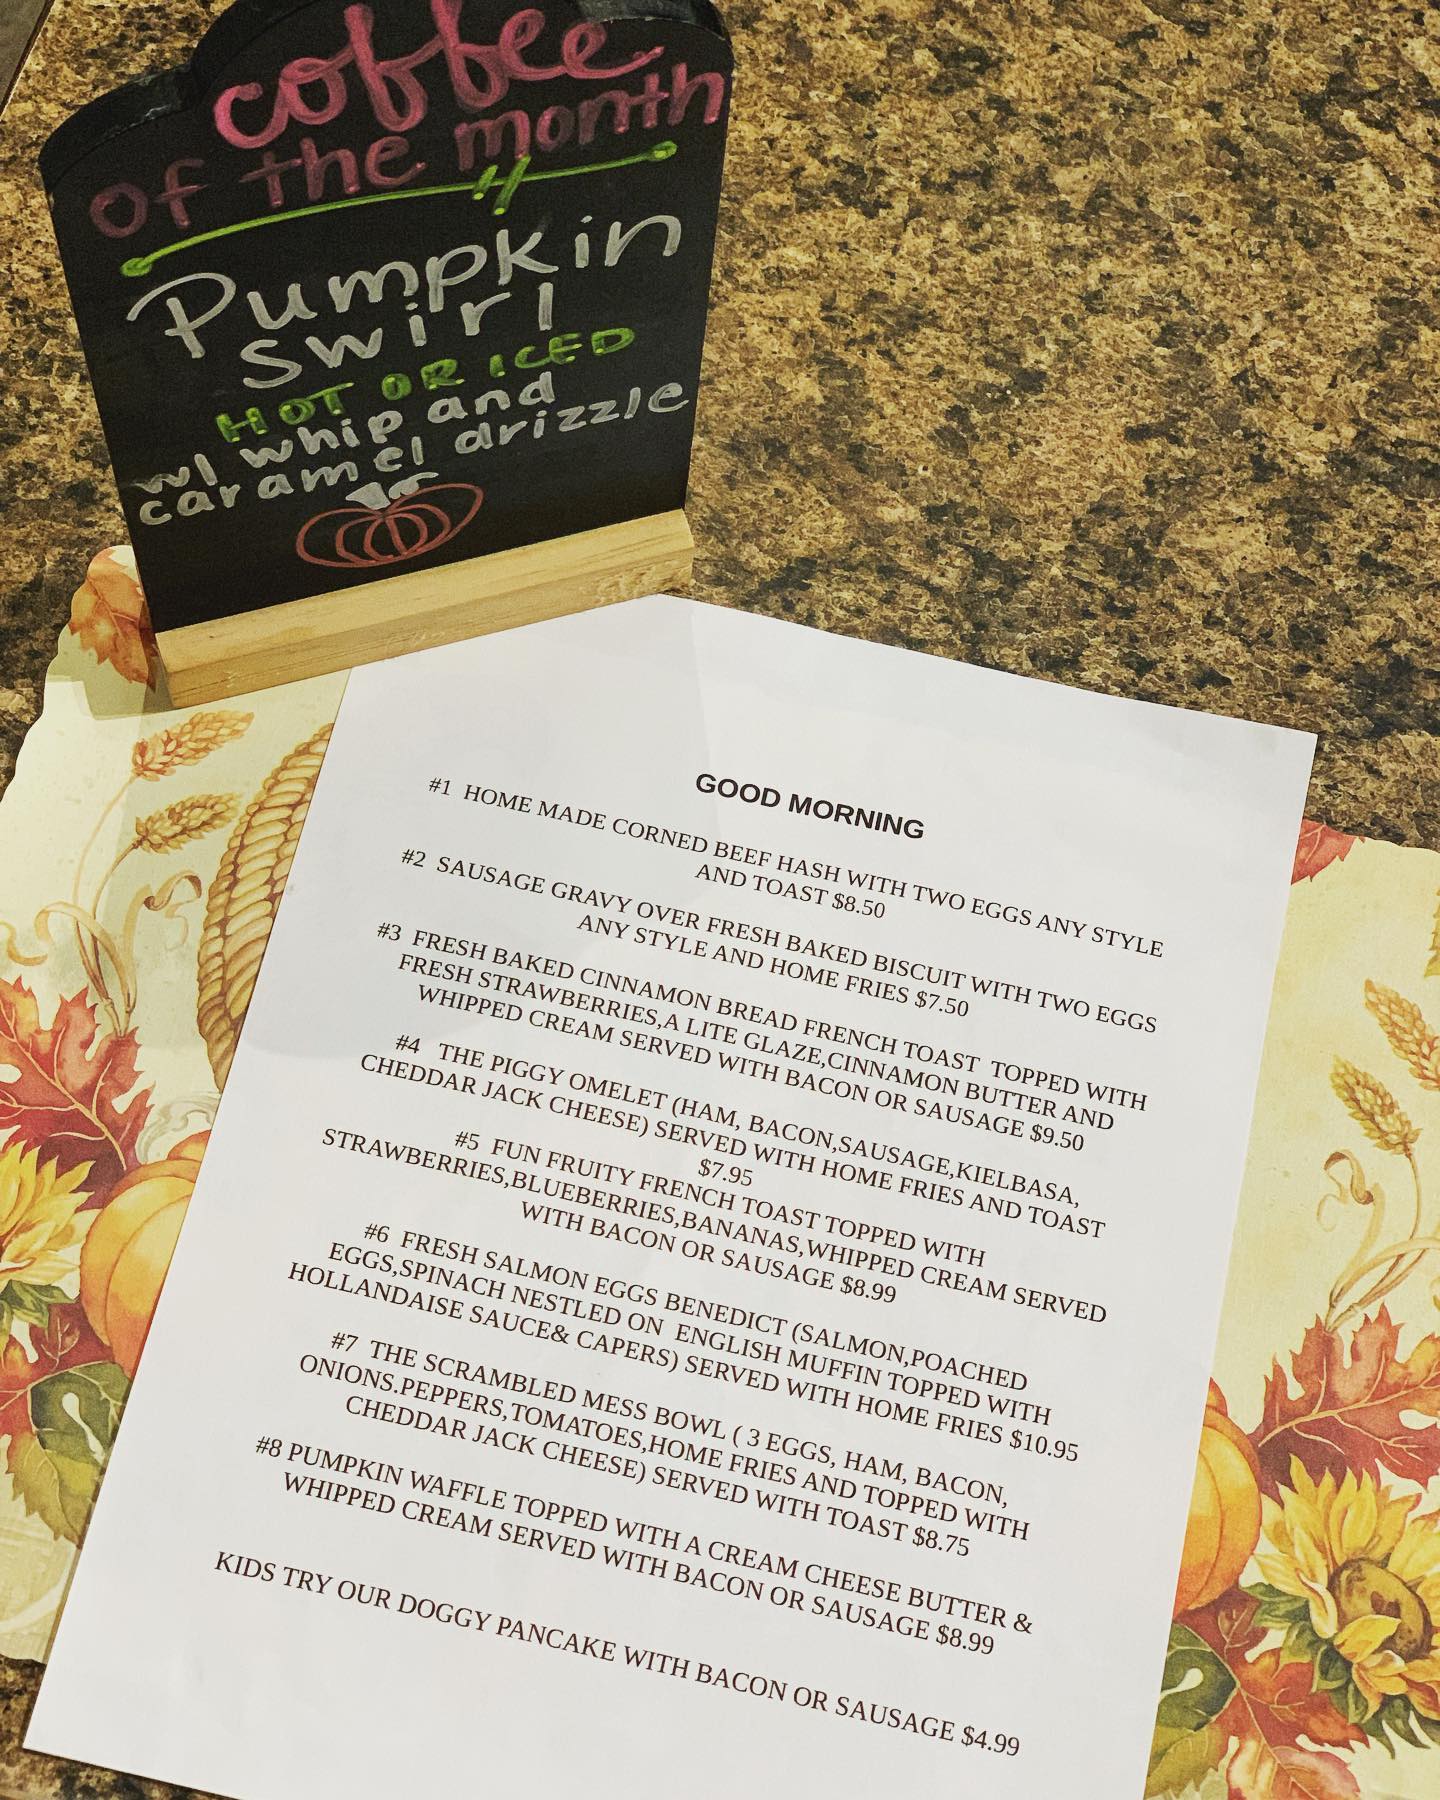 coffee
of the month
Pumpkin
swirl
HOT OR ICED
w/ whip and
caramel drizzle
GOOD MORNING
#1 HOME MADE CORNED BEEF HASH WITH TWO EGGS ANY STYLE
AND TOAST $8.50
#2 SAUSAGE GRAVY OVER FRESH BAKED BISCUIT WITH TWO EGGS
ANY STYLE AND HOME FRIES $7.50
#3 FRESH BAKED CINNAMON BREAD FRENCH TOAST TOPPED WITH
FRESH STRAWBERRIES,A LITE GLAZE,CINNAMON BUTTER AND
WHIPPED CREAM SERVED WITH BACON OR SAUSAGE $9.50
#4 THE PIGGY OMELET (HAM, BACON,SAUSAGE,KIELBASA,
CHEDDAR JACK CHEESE) SERVED WITH HOME FRIES AND TOAST
$7.95
#5 FUN FRUITY FRENCH TOAST TOPPED WITH
STRAWBERRIES,BLUEBERRIES,BANANAS,WHIPPED CREAM SERVED
WITH BACON OR SAUSAGE $8.99
#6 FRESH SALMON EGGS BENEDICT (SALMON,POACHED
EGGS,SPINACH NESTLED ON ENGLISH MUFFIN TOPPED WITH
HOLLANDAISE SAUCE& CAPERS) SERVED WITH HOME FRIES $10.95
#7 THE SCRAMBLED MESS BOWL ( 3 EGGS, HAM, BACON,
ONIONS.PEPPERS,TOMATOES,HOME FRIES AND TOPPED WITH
CHEDDAR JACK CHEESE) SERVED WITH TOAST $8.75
#8 PUMPKIN WAFFLE TOPPED WITH A CREAM CHEESE BUTTER &
WHIPPED CREAM SERVED WITH BACON OR SAUSAGE $8.99
KIDS TRY OUR DOGGY PANCAKE WITH BACON OR SAUSAGE $4.99